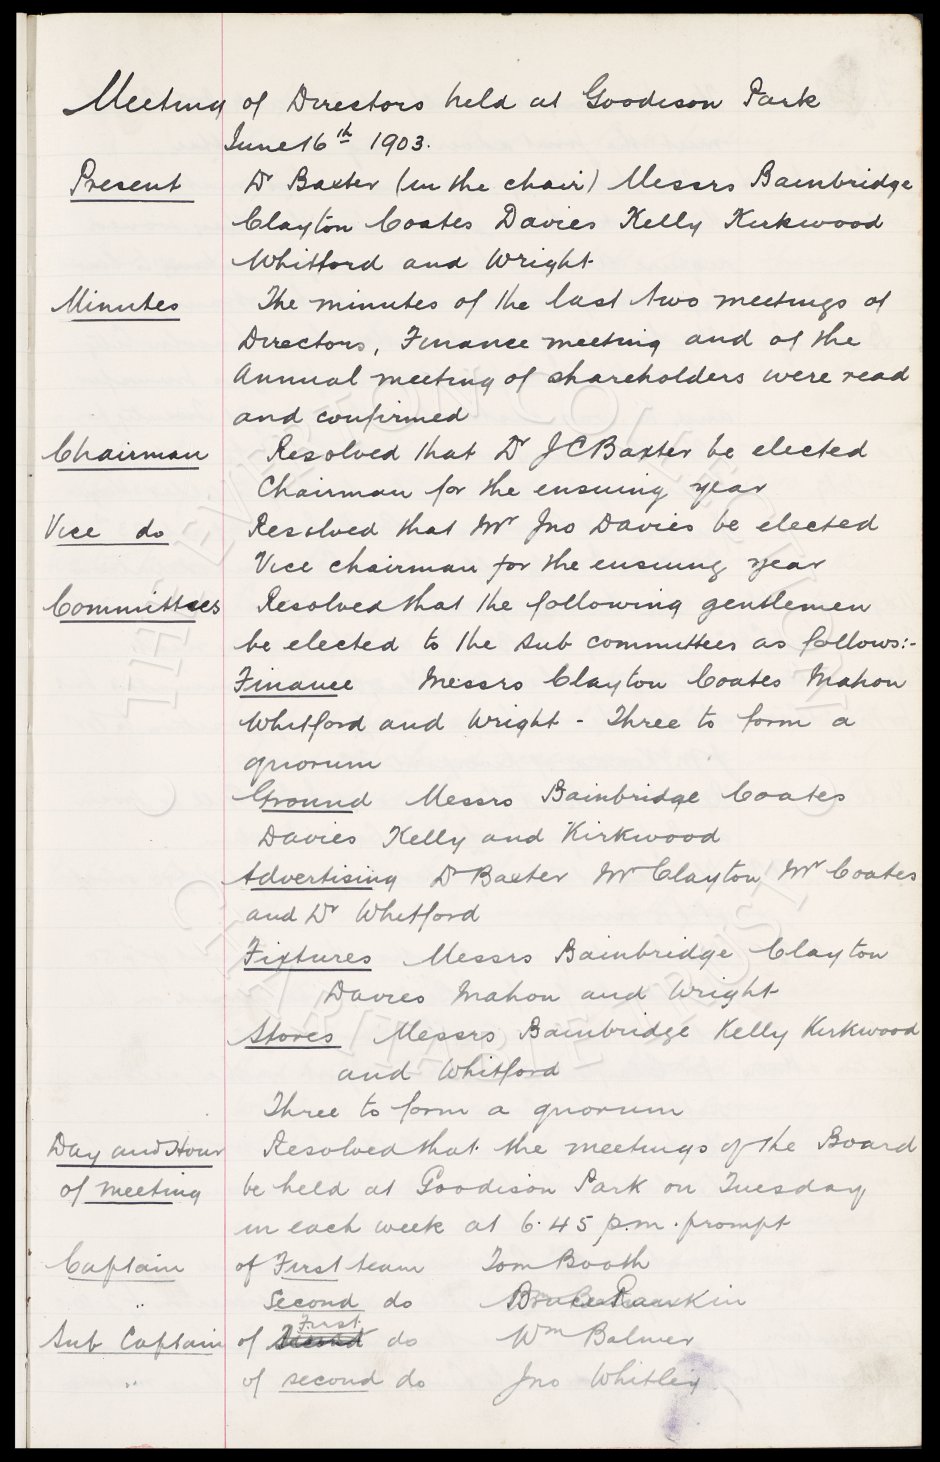 Meeting of Directors held at Goodison Park
June 16th 1903.
Present Dr Baxter (in the chair) Messrs Bainbridge
Clayton Coates Davies Kelly Kirkwood
Whitford and Wright
Minutes The minutes of the last two meetings of
Directors, Finance meeting and of the
Annual meeting of shareholders were read
and confirmed
Chairman Resolved that Dr J C Baxter be elected
Chairman for the ensuing year
Vice do Resolved that Mr Jno Davies be elected
Vice chairman for the ensuing year
Committees Resolved that the following gentlemen
be elected to the sub committees as follows:-
Finance Messrs Clayton Coates Mahon
Whitford and Wright - Three to form a
quorum
Ground Messrs Bainbridge Coates
Davies Kelly and Kirkwood
Advertising Dr Baxter Mr Clayton Mr Coates
and Dr Whitford
Fixtures Messrs Bainbridge Clayton
Davies Mahon and Wright
Stores Messrs Bainbridge Kelly Kirkwood
and Whitford
Three to form a quorum
Day and Hour Resolved that the meetings of the Board
of meeting be held at Goodison Park on Tuesday
in each week at 6.45 p.m. prompt
Captain of First team Tom Booth
" Second do Bruce Rankin
Sub Captain of First do Wm Balmer
" of second do Jno Whitley